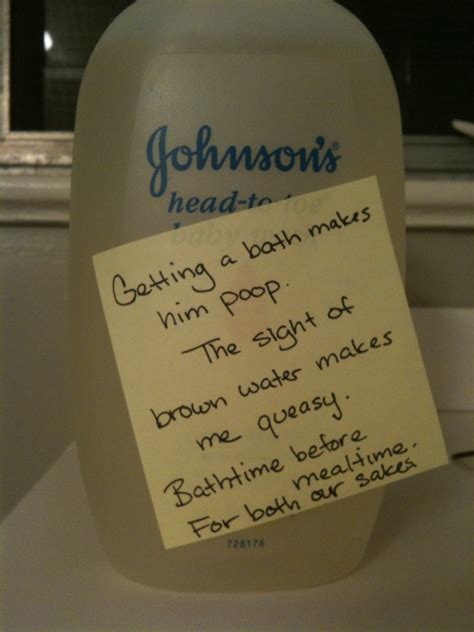 Johnson's®
head-to-toe
baby wash
Getting a bath makes
him poop.
The sight of
brown water makes
me queasy.
Bathtime before
mealtime.
For both our sakes.
728176